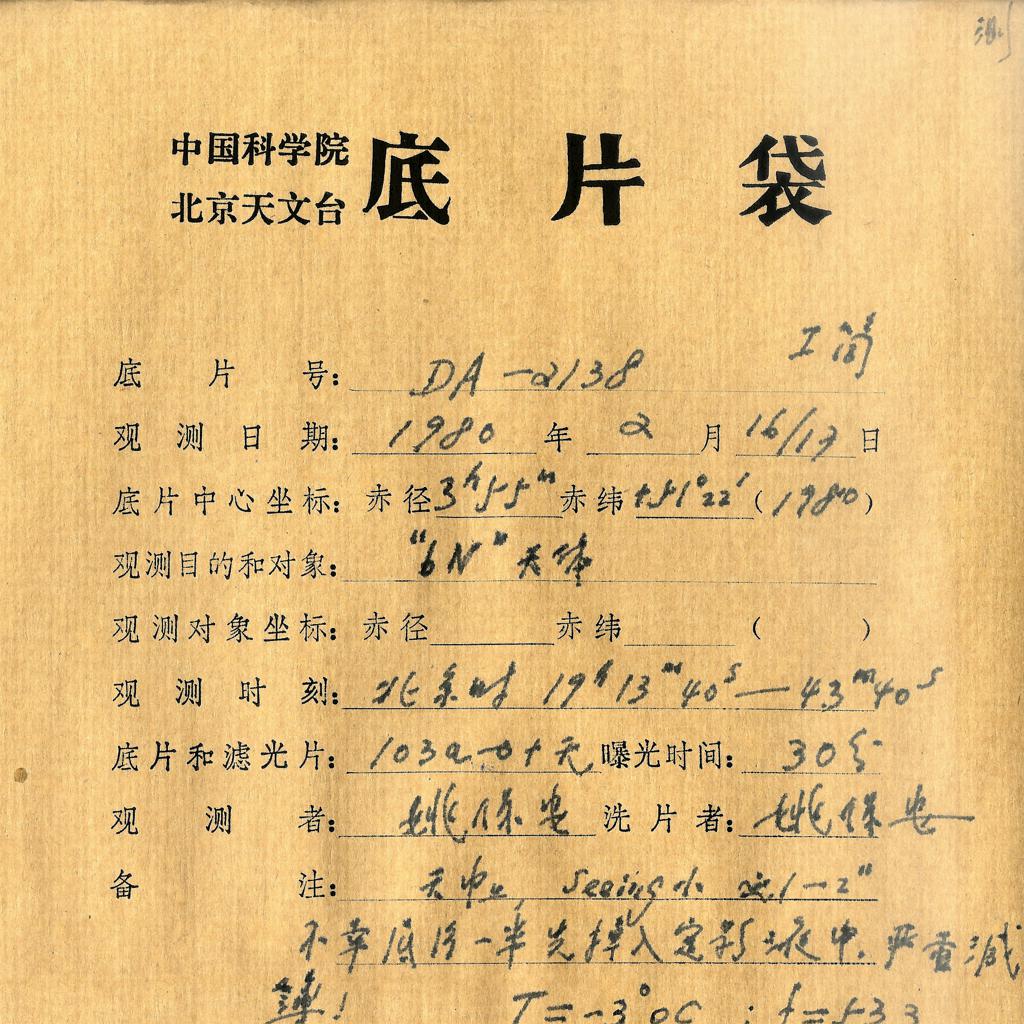 测
中国科学院
北京天文台 底片袋
底片号: DA-2138
观测日期: 1980 年 2 月 16/17 日
底片中心坐标: 赤径 3h55m 赤纬 +51°22′ (1980)
观测目的和对象: "bN" 天体
观测对象坐标: 赤径 赤纬 ( )
观测时刻: 北京时 19h13m40s—43m40s
底片和滤光片: 103a-0+无 曝光时间: 30分
观测者: 姚保安 洗片者: 姚保安
备注: seeing小 1-2"
不幸底片一半先掉入定影液中.严重减
T=-3°.0C ; f=533